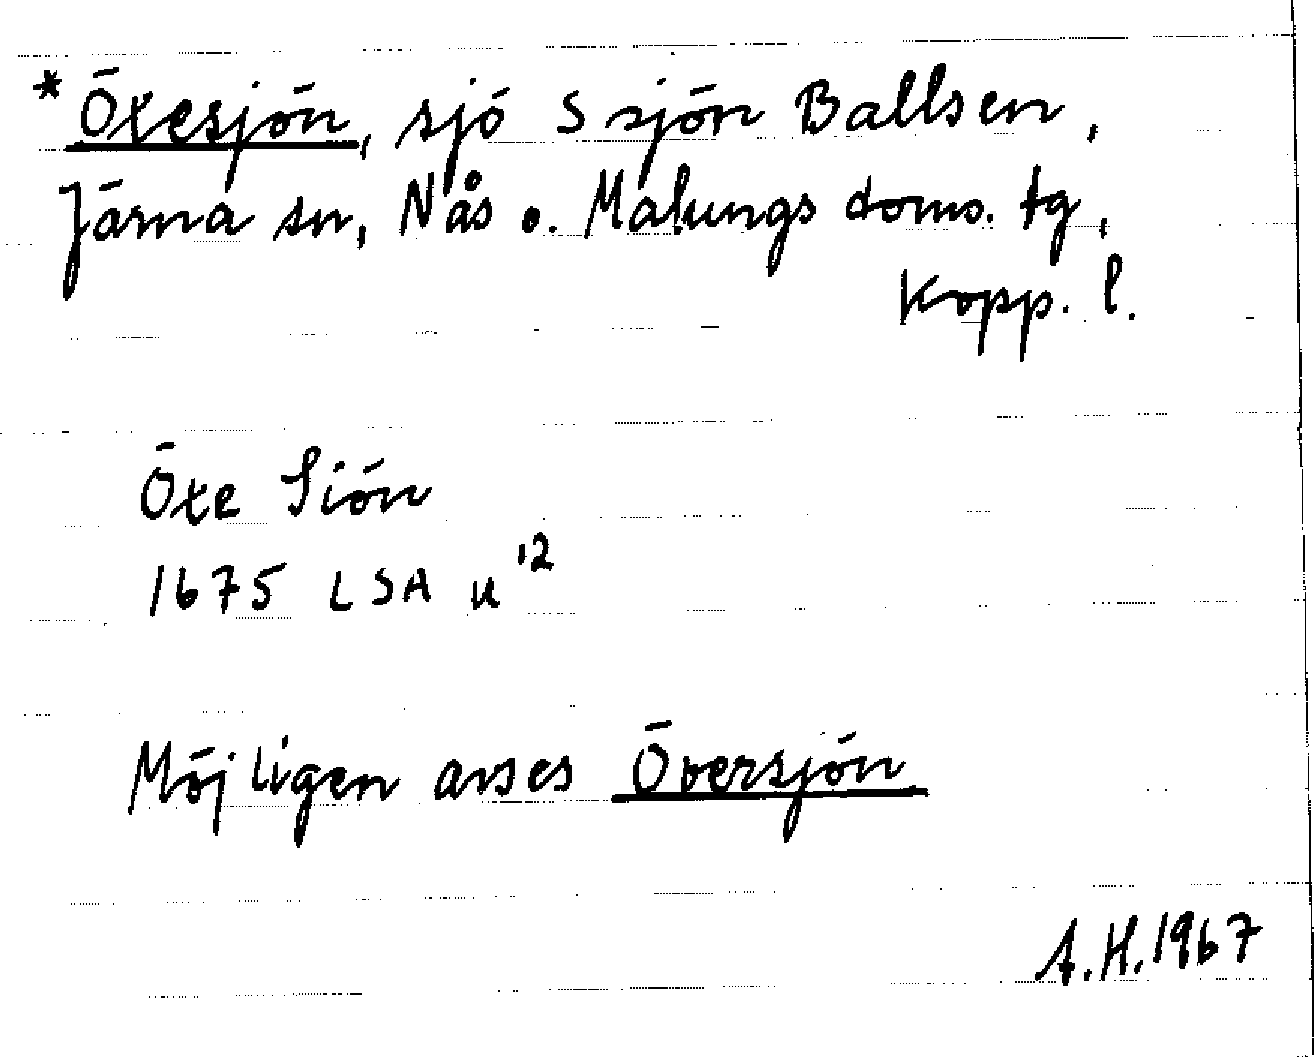 * Öxesjön, sjö S sjön Ballsen,
Järna sn, Nås o. Malungs doms. tg,
Kopp. l.
Öxe Siön
1675 LSA u 12
Möjligen avses Översjön
A.H. 1967